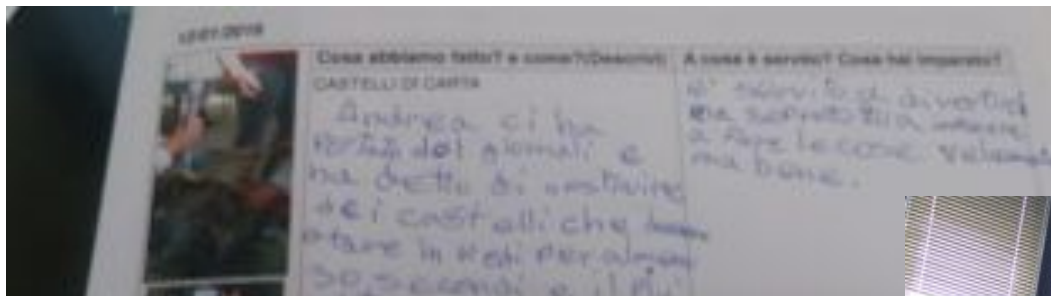 12/01/2018
Cosa abbiamo fatto? e come?(Descrivi)
A cosa è servito? Cosa hai imparato?
CASTELLI DI CARTA
Andrea ci ha
dei giornali e
ha detto di costruire
dei castelli che
stare in piedi per almeno
30 secondi e il più
è servito a divertirci
a fare le cose velocemente
ma bene.